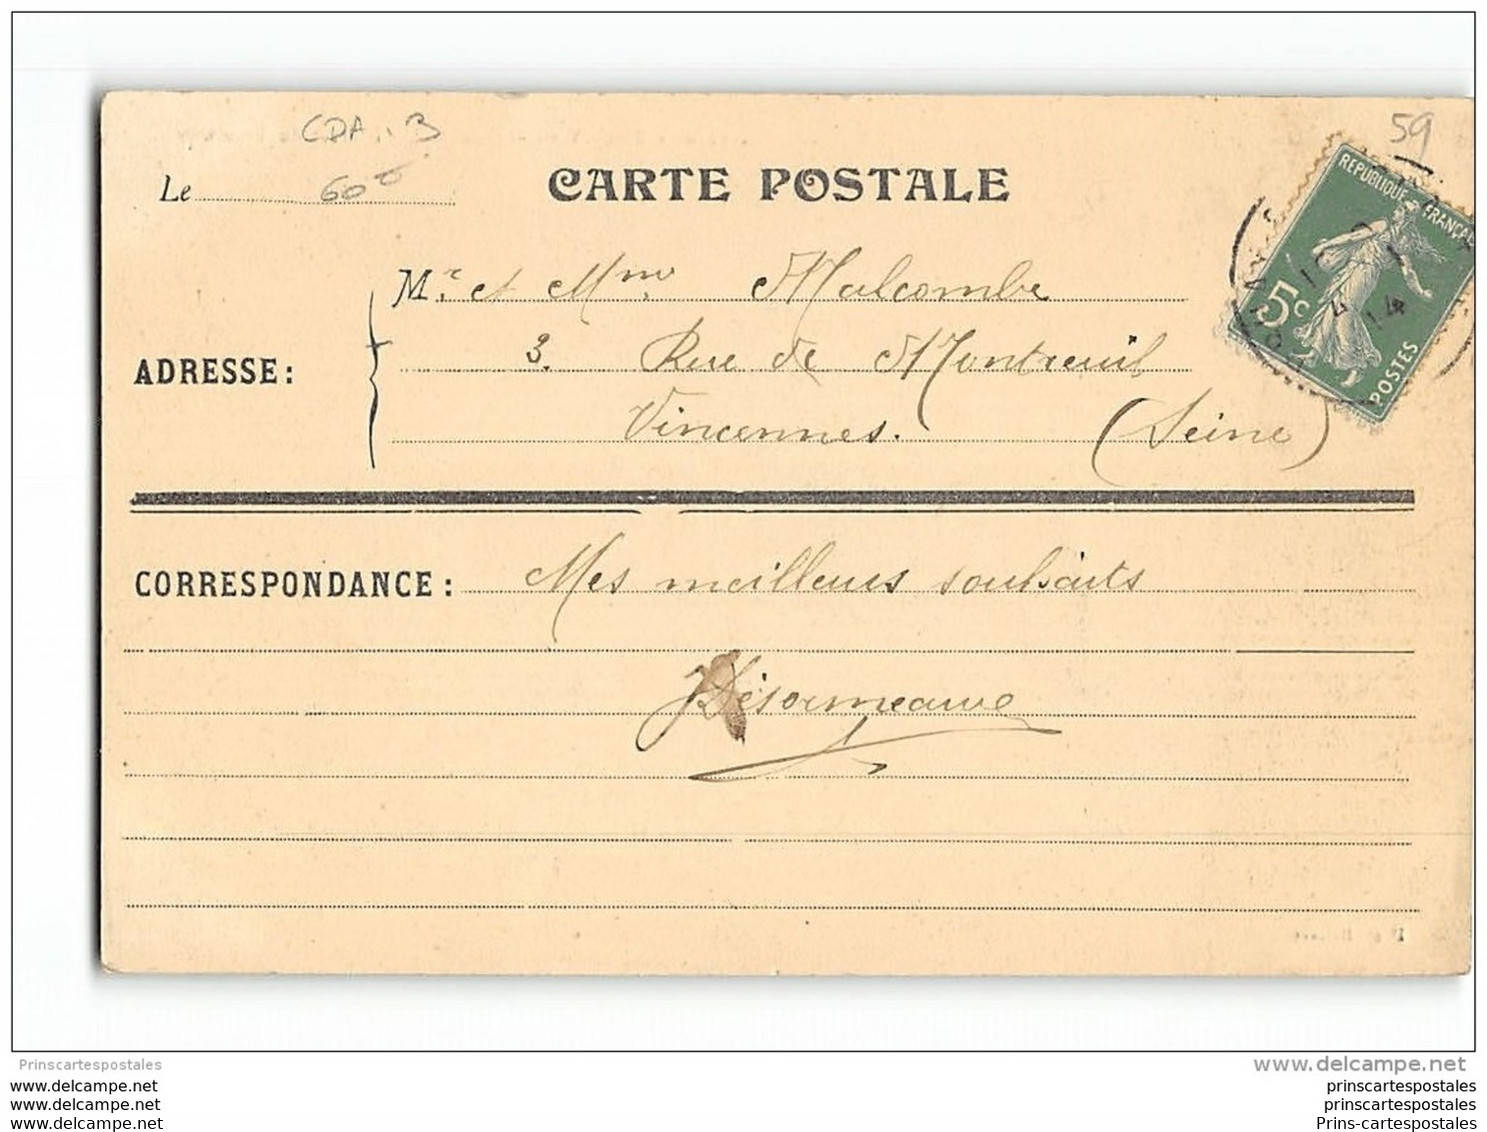 CDA 3
59
60
Le
CARTE POSTALE
REPUBLIQUE FRANCAI
5c
POSTES
14
Mr. et Mme Malcombe
ADRESSE:
3. Rue de Montreuil
Vincennes. (Seine)
CORRESPONDANCE: Mes meilleurs souhaits
Désormeaux
Prinscartespostales
www.delcampe.net
www.delcampe.net
www.delcampe.net
www.delcampe.net
prinscartespostales
prinscartespostales
Prins-cartespostales